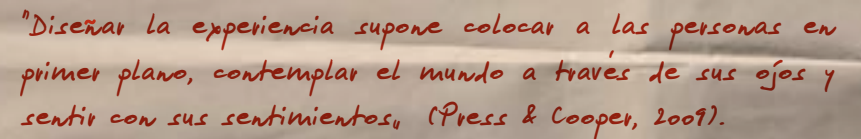 "Diseñar la experiencia supone colocar a las personas en
primer plano, contemplar el mundo a través de sus ojos y
sentir con sus sentimientos„ (Press & Cooper, 2009).